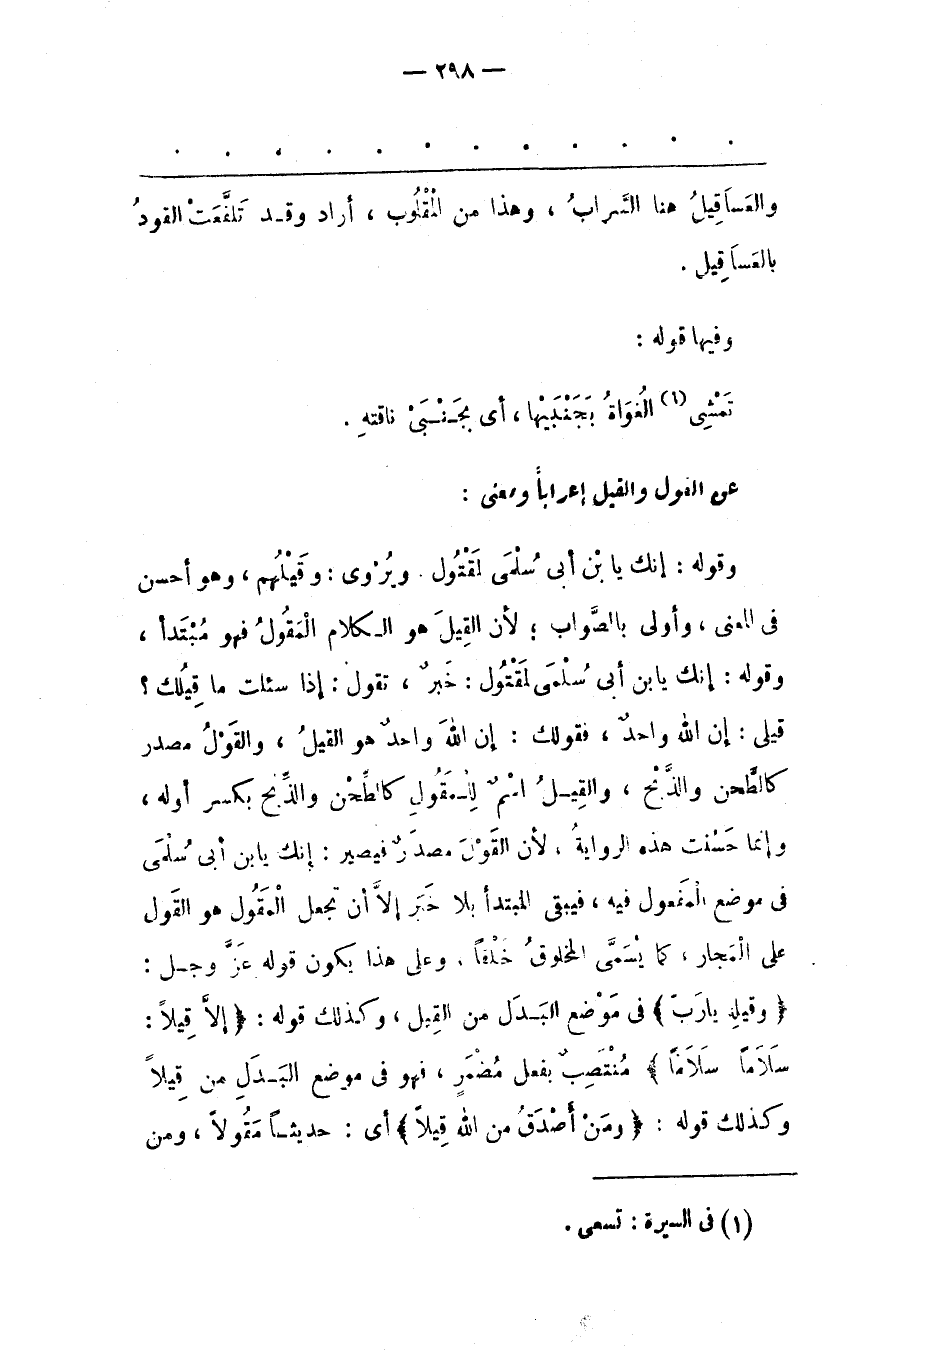 — ٢٩٨ —
. . . . . . . . . . . .
والعَسَاقِيلُ هنا السَّرابُ ، وهذا من الْمَقْلُوب ، أراد وقـد تَلفَّعَتْ القودُ
بالعَسَاقِيلِ .
وفيها قوله :
تَمْشِى (١) الْغُوَاةُ بَجَنْبَيْها ، أى بجَـنْـبَىْ ناقتهِ .
عن القول والقيل إعراباً ومعنى :
وقوله : إنك يا بْن أبى سُلْمَى لَمَقْتُول . ويُرْوى : وقَيْلُهم ، وهو أحسن
فى المعنى ، وأولى بالصَّواب ؛ لأن القِيلَ هو الـكلام الْمَقُولُ فهو مُبْتَدأ ،
وقوله : إنك يابن أبى سُلْمَى لَمَقْتُول : خَبرٌ ، تقول : إذا سئلت ما قِيلُك ؟
قيلى : إن الله واحدٌ ، فقولك : إن اللهَ واحدٌ هو القيلُ ، والقَوْلُ مصدر
كالطَّحن والذَّبْح ، والقِيـلُ اسْمٌ لِلْـمَقُولِ كالطِّحْن والذِّبْح بكسر أوله ،
وإنما حَسُنت هذه الروايةُ ، لأن القَوْلَ مصدَرٌ فيصير : إنك يابن أبى سُلْمَى
فى موضع الْمَفعول فيه ، فيبقى المبتدأ بلا خَبَر إلاَّ أن تجعل الْمَقُول هو القَول
على الْمَجار ، كما يُسَمَّى المخلوقُ خَلْقاً . وعلى هذا يكون قوله عَزَّ وجـل :
﴿ وقيلِهِ يارَبّ ﴾ فى مَوْضع البَـدَل من القِيل ، وكـذلك قوله : ﴿ إلاَّ قِيلاً :
سَلَاَماً سَلَاَماً ﴾ مُنْتَصِبٌ بفعل مُضْمَرٍ ، فهو فى موضع البَـدَلِ من قِيلاً
وكـذلك قوله : ﴿ ومَنْ أَصْدَقُ من الله قِيلاً ﴾ أى : حديثـاً مَقُولاً ، ومن
(١) فى السيرة : تسعى .